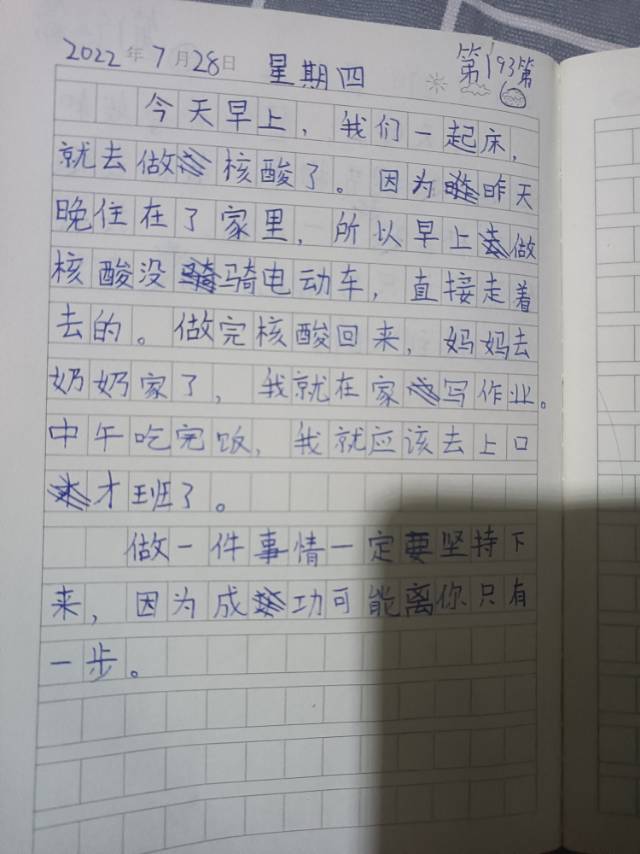 2022年7月28日 星期四 第193第
今天早上，我们一起床，
就去做核酸了。因为昨天
晚住在了家里，所以早上做
核酸没骑电动车，直接走着
去的。做完核酸回来，妈妈去
奶奶家了，我就在家写作业。
中午吃完饭，我就应该去上口
才班了。
做一件事情一定要坚持下
来，因为成功可能离你只有
一步。